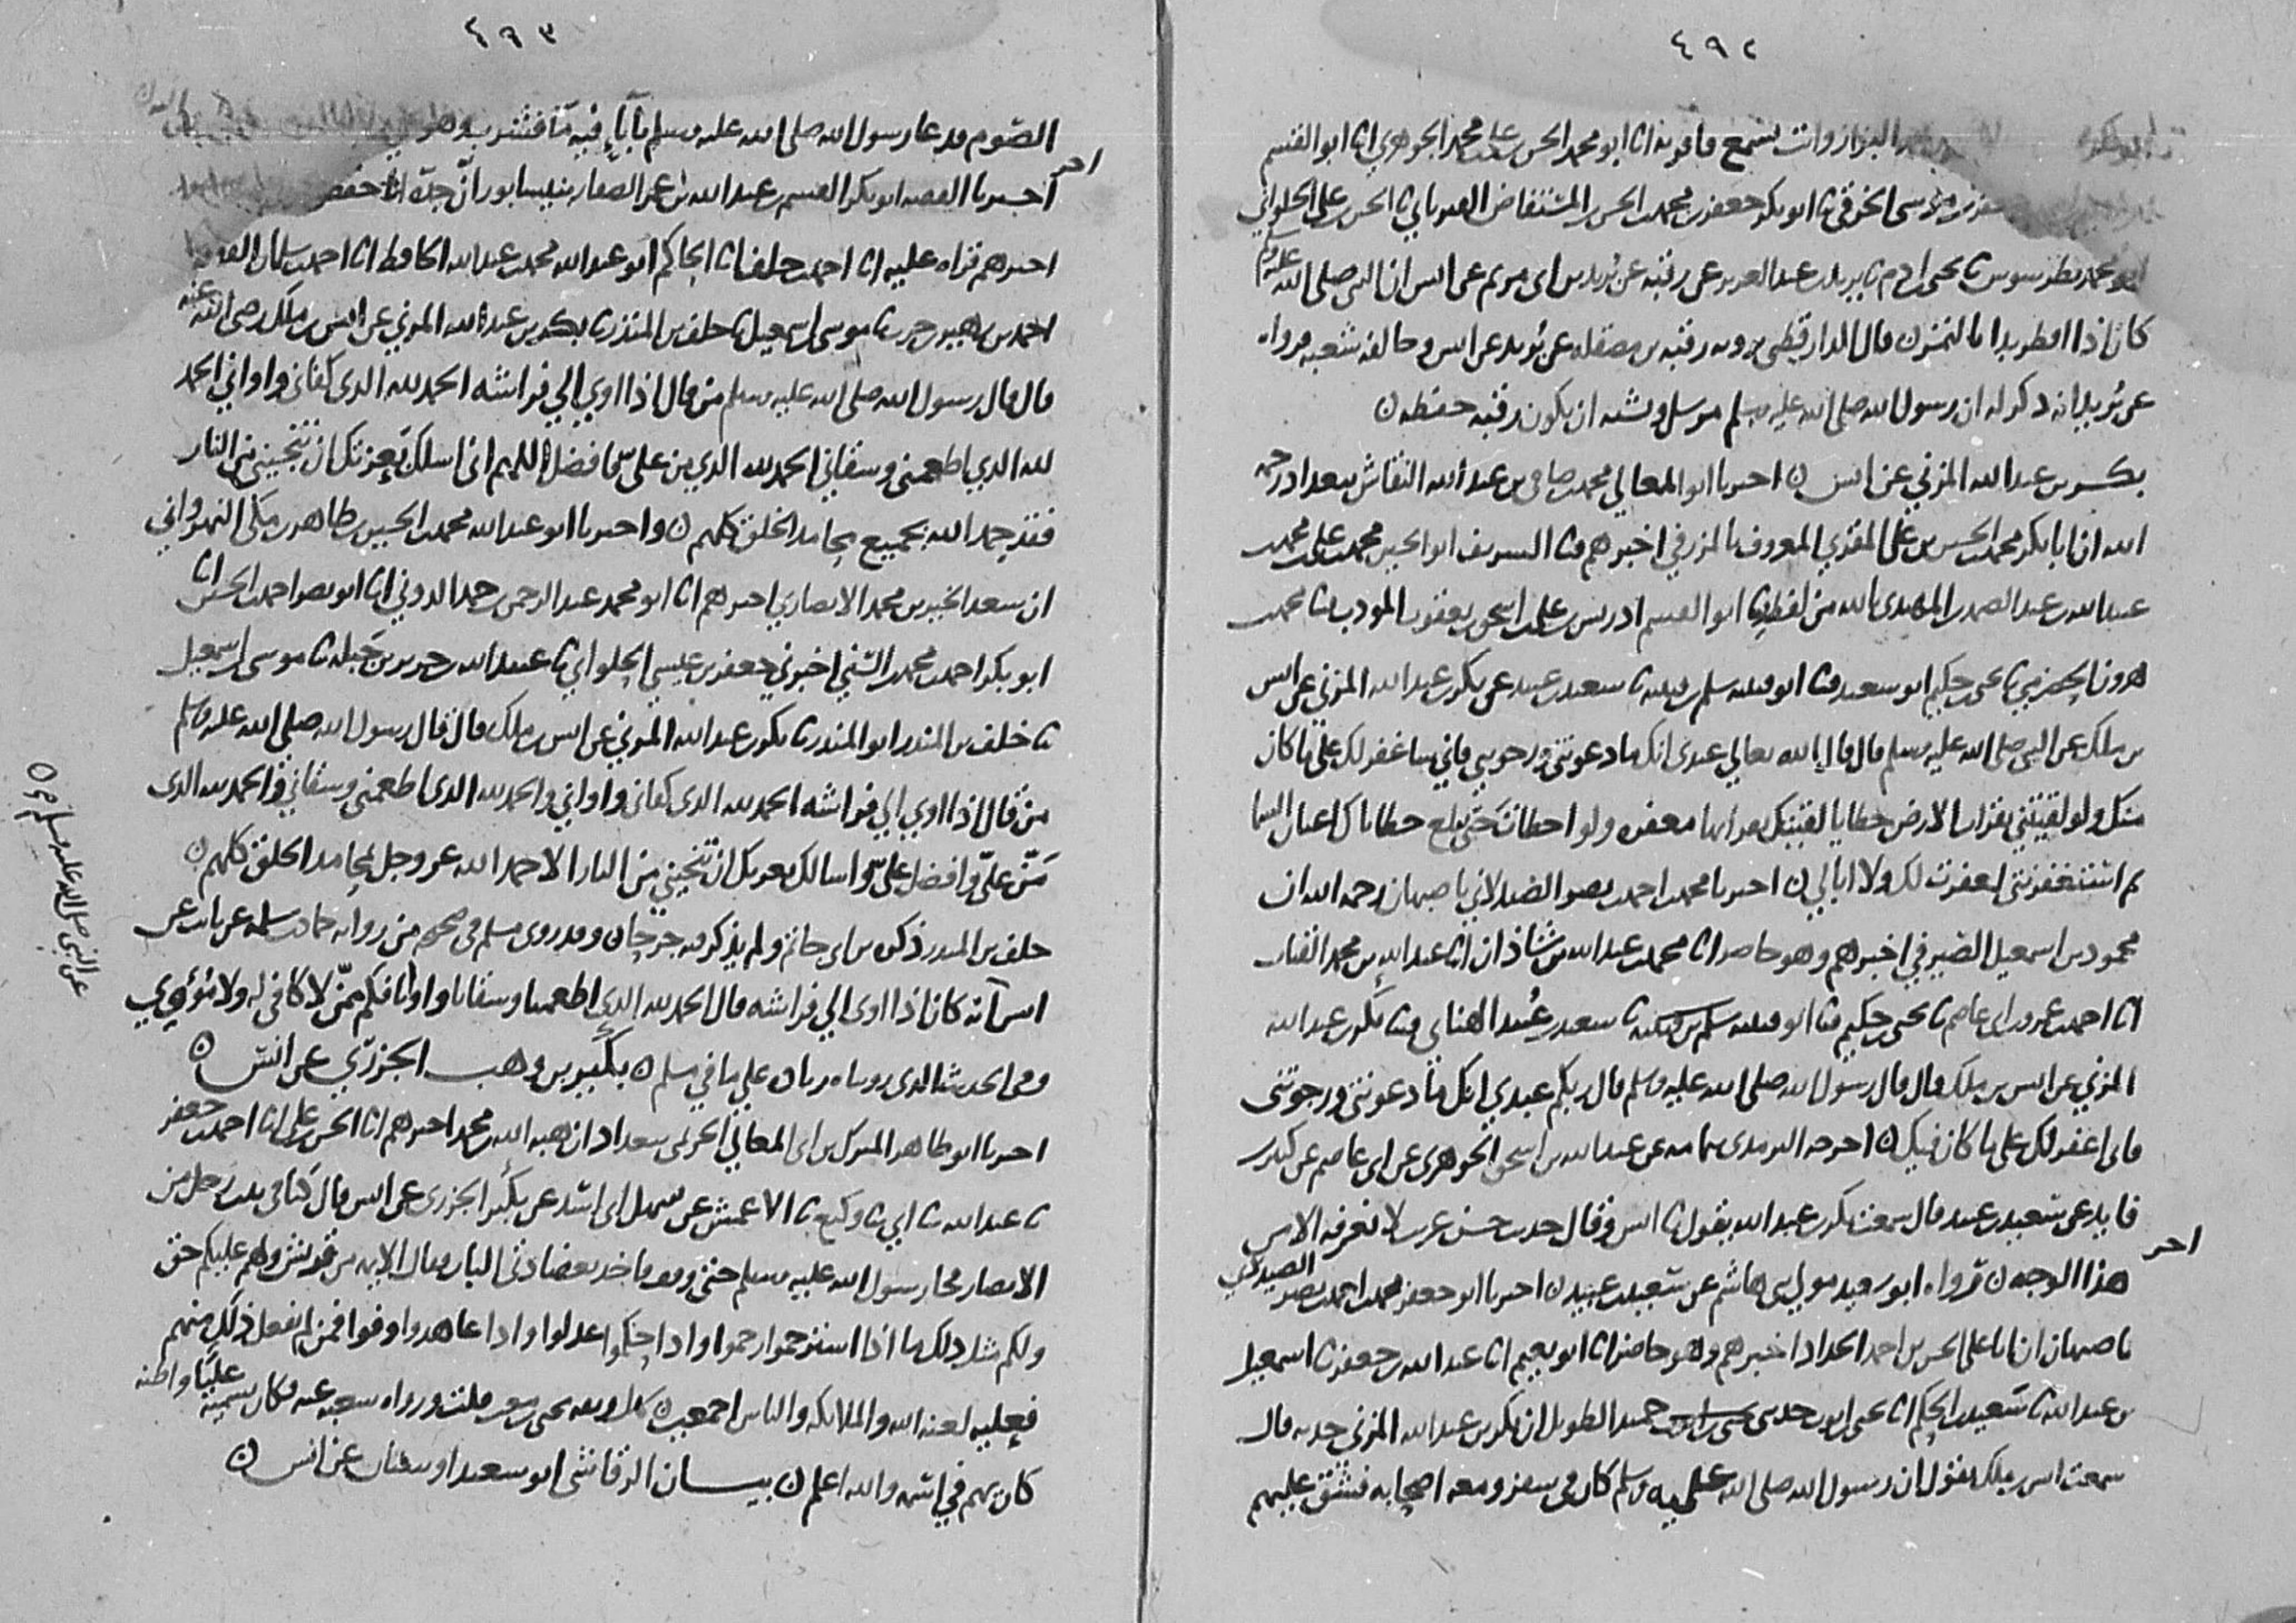 ٤٩٢
البزاز وانت تسمع فاقر به انا ابو محمد الحسن بن علي بن محمد الجوهري انا ابو القسم
بن موسى الخرقي نا ابو بكر جعفر بن محمد بن الحسن بن المستفاض الفريابي نا الحسن بن علي الحلواني
ابو محمد بطرسوس نا يحيى بن ادم نا يزيد بن عبد العزيز عن رقبة عن بريد بن ابي مريم عن انس ان النبي صلى الله عليه وسلم
كان اذا افطر بدا بالتمر ن قال الدارقطني يرويه رقبة بن مصقلة عن بريد عن انس وخالفه شعبة فرواه
عن بريد انه ذكر له ان رسول الله صلى الله عليه وسلم مرسل ويشبه ان يكون رقبة حفظه ن
بكر بن عبد الله المزني عن انس ن اخبرنا ابو المعالي محمد بن صافي بن عبد الله النقاش ببغداد رحمه
الله ان ابا بكر محمد بن الحسين بن علي المقري المعروف بالمزرفي اخبرهم ثنا الشريف ابو الحسين محمد بن علي بن محمد بن
عبيد الله بن عبد الصمد بن المهتدي بالله من لفظه نا ابو القسم ادريس بن علي بن اسحق بن يعقوب المودب نا محمد بن
هرون الحضرمي نا يحيى بن حكيم ابو سعيد ثنا ابو قتيبة سلم بن قتيبة نا سعيد بن عبيد عن بكر بن عبد الله المزني عن انس
بن ملك عن النبي صلى الله عليه وسلم قال قال الله تعالي عبدي انك ما دعوتني ورجوتني فاني ساغفر لك علي ما كان
منك ولو لقيتني بقراب الارض خطايا لقيتك بقرابها مغفرة ولو اخطات حتى تبلغ خطاياك اعنان السما
ثم استغفرتني لغفرت لك ولا ابالي ن اخبرنا محمد بن احمد بن نصر الصيدلاني باصبهان رحمه الله ان
محمود بن اسمعيل الصيرفي اخبرهم وهو حاضر انا محمد بن عبد الله بن شاذان انا عبد الله بن محمد القباب
انا احمد بن عمرو بن ابي عاصم نا يحيى بن حكيم ثنا ابو قتيبة سلم بن قتيبة نا سعيد بن عبيد الهنائي ثنا بكر بن عبد الله
المزني عن انس بن ملك قال قال رسول الله صلى الله عليه وسلم قال ربكم عبدي انك ما دعوتني ورجوتني
فاني اغفر لك على ما كان فيك ن اخرجه الترمذي بتمامه عن عبد الله بن اسحق الجوهري عن ابي عاصم عن كثير بن
فايد عن سعيد بن عبيد قال سمعت بكر بن عبد الله يقول نا انس وقال حديث حسن غريب لا نعرفه الا من
هذا الوجه ن قرواه ابو سعيد مولي بني هاشم عن سعيد بن عبيد ن اخبرنا ابو جعفر محمد بن احمد بن نصر الصيدلاني
باصبهان ان ابا علي الحسن بن احمد الحداد اخبرهم وهو حاضر انا ابو نعيم انا عبد الله بن جعفر نا اسمعيل
بن عبد الله نا سعيد بن الحكم انا يحيى بن ايوب حدثني حميد الطويل ان بكر بن عبد الله المزني حدثه قال
سمعت انس بن ملك يقول ان رسول الله صلى الله عليه وسلم كان في سفر ومعه اصحابه فشق عليهم
٤٩٣
الصوم فدعا رسول الله صلى الله عليه وسلم باناء فيه ما فشرب وهو
اخبرنا الفقيه ابو بكر القسم بن عبد الله بن عمر الصفار بنيسابور ان جده ابا حفص
اخبرهم قراه عليه انا احمد بن خلف انا الحاكم ابو عبد الله محمد بن عبد الله الحافظ انا احمد بن سلمان الفقيه
احمد بن زهير بن حرب نا موسى بن اسمعيل نا خلف بن المنذر نا بكر بن عبد الله المزني عن انس بن ملك رضي الله عنه
قال قال رسول الله صلى الله عليه وسلم من قال اذا اوي الي فراشه الحمد لله الذي كفاني واواني الحمد
لله الذي اطعمني وسقاني الحمد لله الذي من علي فافضل اللهم اني اسلك بعزتك ان تنجيني من النار
فقد حمد الله بجميع محامد الخلق كلهم ن واخبرنا ابو عبد الله محمد بن الحسين بن طاهر بن مكي النهرواني
ان سعد الخير بن محمد الانصاري اخبرهم انا ابو محمد عبد الرحمن بن حمد الدوني انا ابو نصر احمد بن الحسين انا
ابو بكر احمد بن محمد السني اخبرني جعفر بن عيسى الحلواني نا عبيد الله بن جرير بن جبلة نا موسى بن اسمعيل
نا خلف بن المنذر ابو المنذر نا بكر بن عبد الله المزني عن انس بن ملك قال قال رسول الله صلى الله عليه وسلم
من قال اذا اوي الي فراشه الحمد لله الذي كفاني واواني والحمد لله الذي اطعمني وسقاني والحمد لله الذي
من علي وافضل علي واسالك بعزتك ان تنجيني من النار الا حمد الله عز وجل بمحامد الخلق كلهم ن
خلف بن المنذر ذكره بن ابي حاتم ولم يذكر فيه جرحا ن وقد روى مسلم في صحيحه من رواية حماد بن سلمة عن ثابت عن
انس انه كان اذا اوى الي فراشه قال الحمد لله الذي اطعمنا وسقانا واوانا فكم ممن لا كافي له ولا مؤوي
وفي الحديث الذي رويناه زيادة علي ما في مسلم ن بكير بن وهب الجزري عن انس ن
اخبرنا ابو طاهر المبرك بن ابي المعالي الحريمي ببغداد ان هبة الله بن محمد اخبرهم انا الحسن بن علي انا احمد بن جعفر
نا عبد الله نا ابي نا وكيع نا الاعمش عن سهل ابي اسد عن بكير الجزري عن انس قال كنا في بيت رجل من
الانصار فجا رسول الله عليه وسلم حتى وقف فاخذ بعضادتي الباب فقال الايمة من قريش ولهم عليكم حق
ولكم مثل ذلك ما اذا استرحموا رحموا واذا حكموا عدلوا واذا عاهدوا وفوا فمن لم يفعل ذلك منهم
فعليه لعنة الله والملائكة والناس اجمعين ن ورواه شعبة عنه فكان يسميه عليا واظنه
كان يهم في اسمه والله اعلم ن بيان الرقاشي ابو سعيد او سفيان عن انس ن
عن النبي صلى الله عليه وسلم